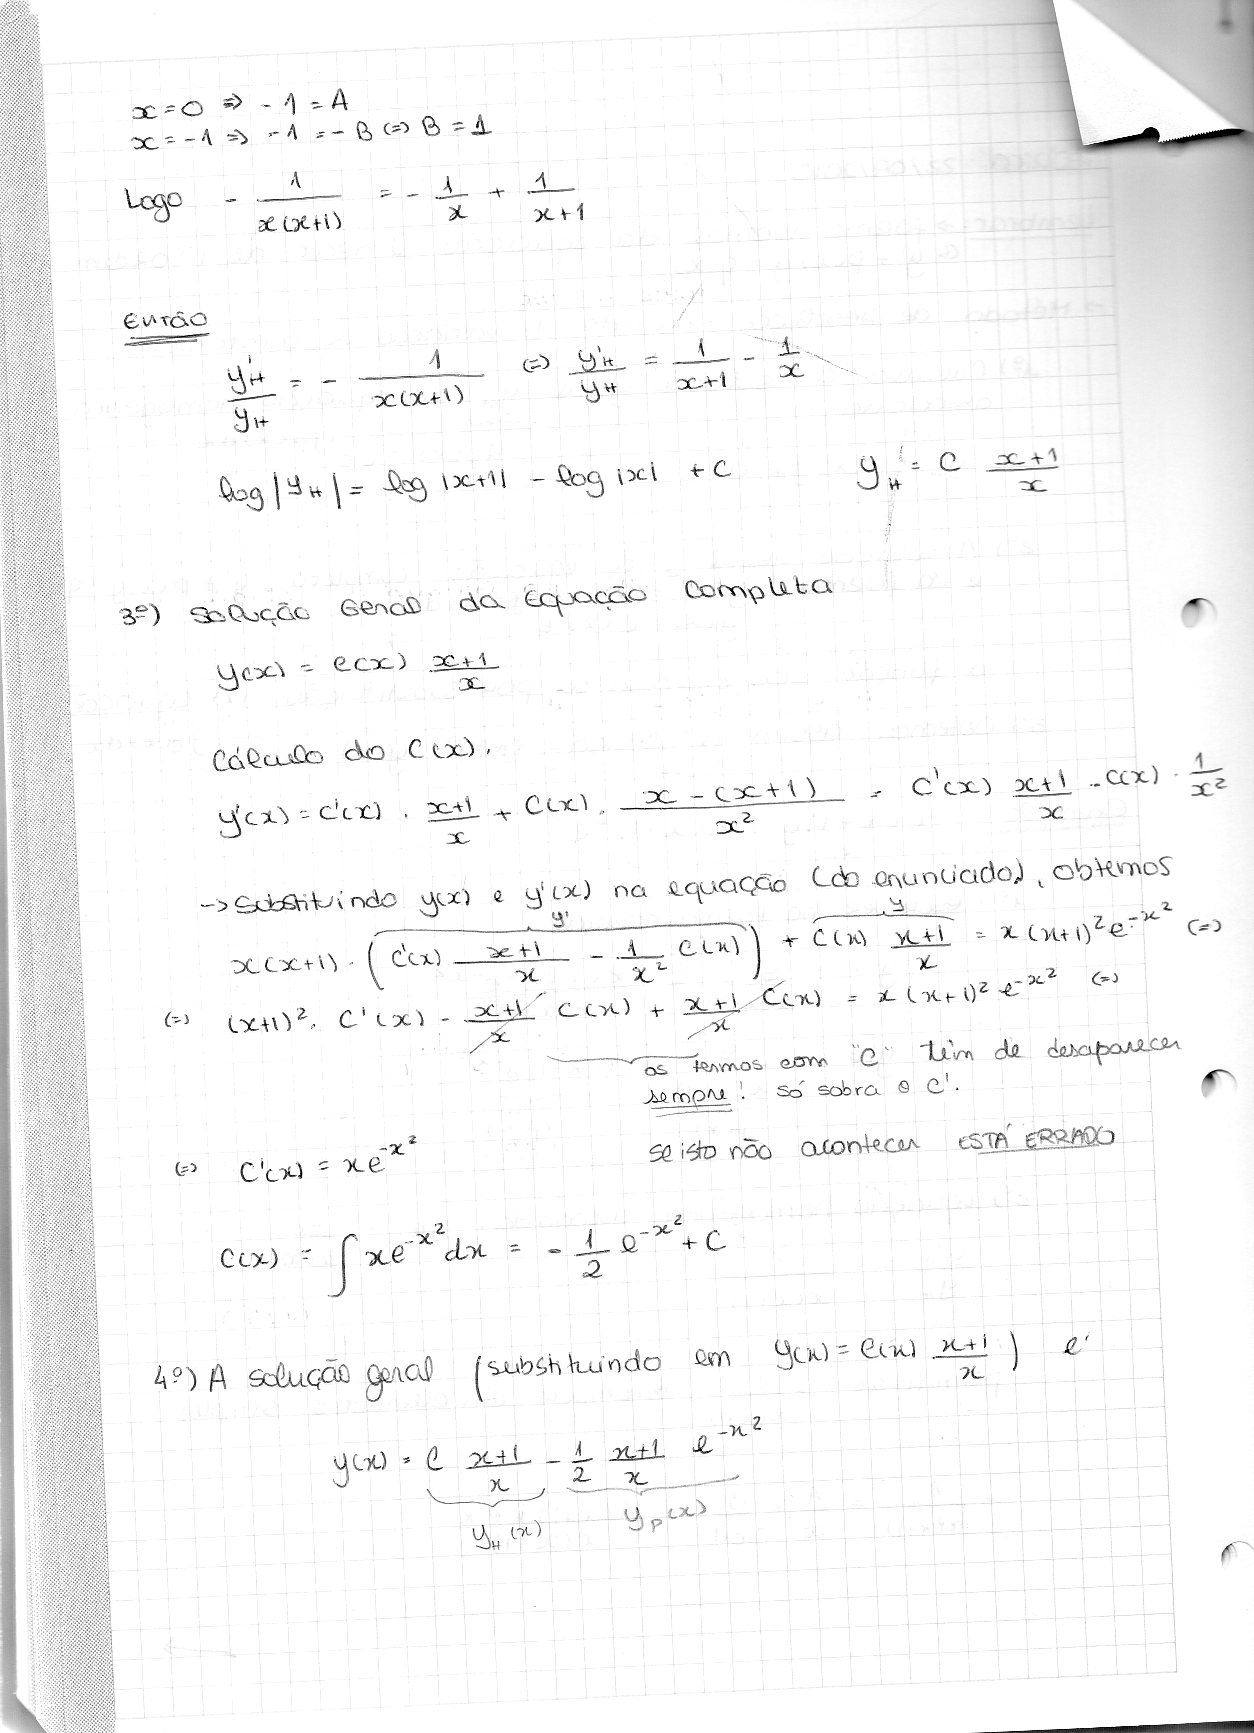 x=0 ⇒ -1 = A
x=-1 ⇒ -1 = -B ⇔ B = 1
Logo - 1/(x(x+1)) = - 1/x + 1/(x+1)
Então
y'H/yH = - 1/(x(x+1)) ⇔ y'H/yH = 1/(x+1) - 1/x
log|yH| = log|x+1| - log|x| + C   yH = C (x+1)/x
3º) Solução Geral da Equação Completa
y(x) = C(x) (x+1)/x
Cálculo do C(x).
y'(x) = C'(x) . (x+1)/x + C(x) . (x-(x+1))/x² = C'(x) (x+1)/x - C(x) . 1/x²
→ Substituindo y(x) e y'(x) na equação (do enunciado), obtemos
y' y
x(x+1) . (C'(x) (x+1)/x - 1/x² C(x)) + C(x) (x+1)/x = x(x+1)²e^(-x²) ⇔
⇔ (x+1)² . C'(x) - (x+1)/x C(x) + (x+1)/x C(x) = x(x+1)² e^(-x²) ⇔
os termos com "C" têm de desaparecer
sempre! Só sobra o C'.
⇔ C'(x) = xe^(-x²)   Se isto não acontecer ESTÁ ERRADO
C(x) = ∫ xe^(-x²) dx = - 1/2 e^(-x²) + C
4º) A solução geral (substituindo em y(x) = C(x) (x+1)/x) é
y(x) = C (x+1)/x - 1/2 (x+1)/x e^(-x²)
yH(x)   yP(x)